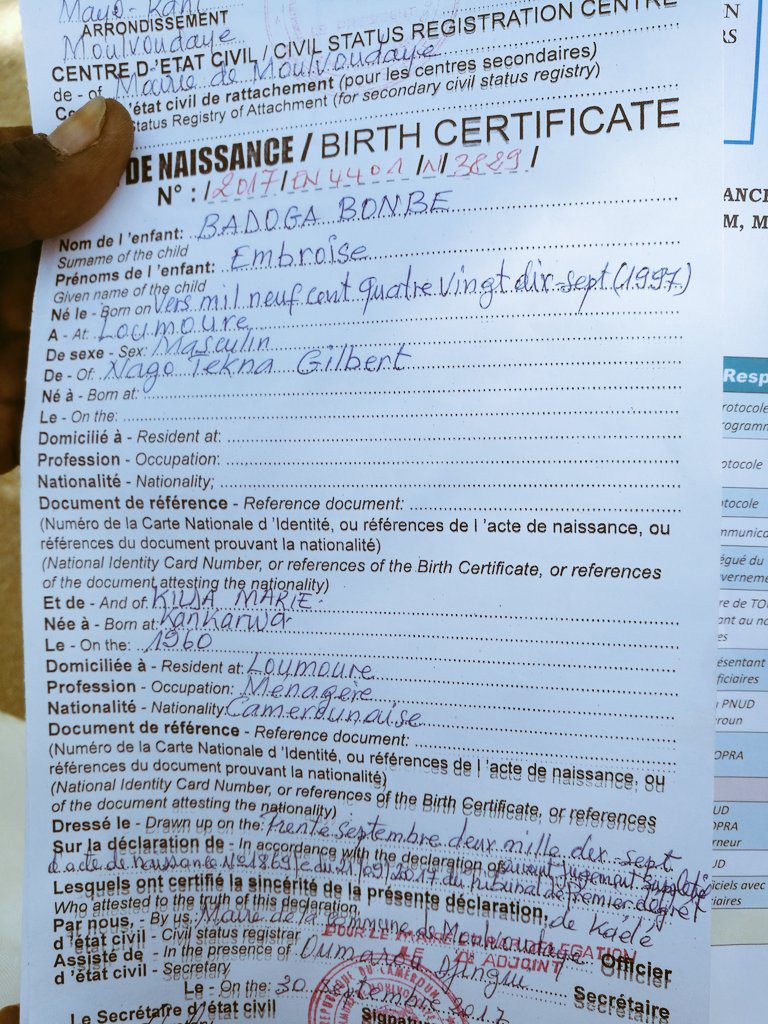 Mayo-Kani
ARRONDISSEMENT
Moulvoudaye
CENTRE D'ETAT CIVIL / CIVIL STATUS REGISTRATION CENTRE
de - of Mairie de Moulvoudaye
d'état civil de rattachement (pour les centres secondaires)
Status Registry of Attachment (for secondary civil status registry)
DE NAISSANCE / BIRTH CERTIFICATE
N° : /2017/CN4401/N/3889/
Nom de l'enfant: BADOGA BONBE
Surname of the child
Prénoms de l'enfant: Embroise
Given name of the child
Né le - Born on Vers mil neuf cent quatre vingt dix-sept (1997)
A - At: Loumoure
De sexe - Sex: Masculin
De - Of: Nago Tekna Gilbert
Né à - Born at:
Le - On the:
Domicilié à - Resident at:
Profession - Occupation:
Nationalité - Nationality;
Document de référence - Reference document:
(Numéro de la Carte Nationale d'Identité, ou références de l'acte de naissance, ou
références du document prouvant la nationalité)
(National Identity Card Number, or references of the Birth Certificate, or references
of the document attesting the nationality)
Et de - And of: KILSA MARIE
Née à - Born at: Kankarwa
Le - On the: 1960
Domiciliée à - Resident at: Loumoure
Profession - Occupation: Menagère
Nationalité - Nationality Camerounaise
Document de référence - Reference document:
(Numéro de la Carte Nationale d'Identité, ou références de l'acte de naissance, ou
références du document prouvant la nationalité)
(National Identity Card Number, or references of the Birth Certificate, or references
of the document attesting the nationality)
Dressé le - Drawn up on the: Trente septembre deux mille dix-sept
Sur la déclaration de - In accordance with the declaration of suivant jugement suppletif
d'acte de naissance N° 1869/c du 21/09/2017 du tribunal de premier degré
Lesquels ont certifié la sincérité de la présente déclaration, de Kaélé
Who attested to the truth of this declaration,
Par nous, - By us, Maire de la commune de Moulvoudaye Officier
d'état civil - Civil status registrar
POUR LE MAIRE PAR DELEGATION
ADJOINT
Assisté de - In the presence of Oumarou Djingui Secrétaire
d'état civil - Secretary
Le - On the: 30 Septembre 2017
Le Secrétaire d'état civil
REPUBLIQUE DU CAMEROUN
ANCE
M, M
Resp
rotocole
rogramm
otocole
tocole
mmunica
égué du
uverneme
re de TO
ant au no
es
ésentant
ficiaires
PNUD
roun
OPRA
UD
OPRA
rneur
UD
iciels avec
iaires